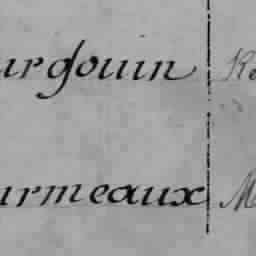 urgouin Re
urmeaux M